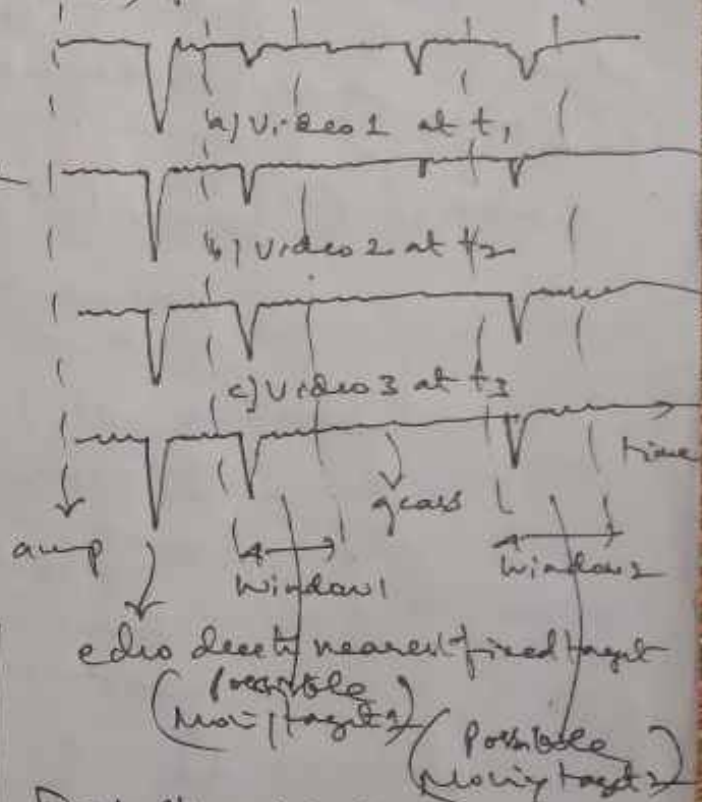 a) Video 1 at t1
b) Video 2 at t2
c) Video 3 at t3
time
grass
amp
Window 1
Window 2
echo nearest fixed target
(possible
(possible
moving target 2)